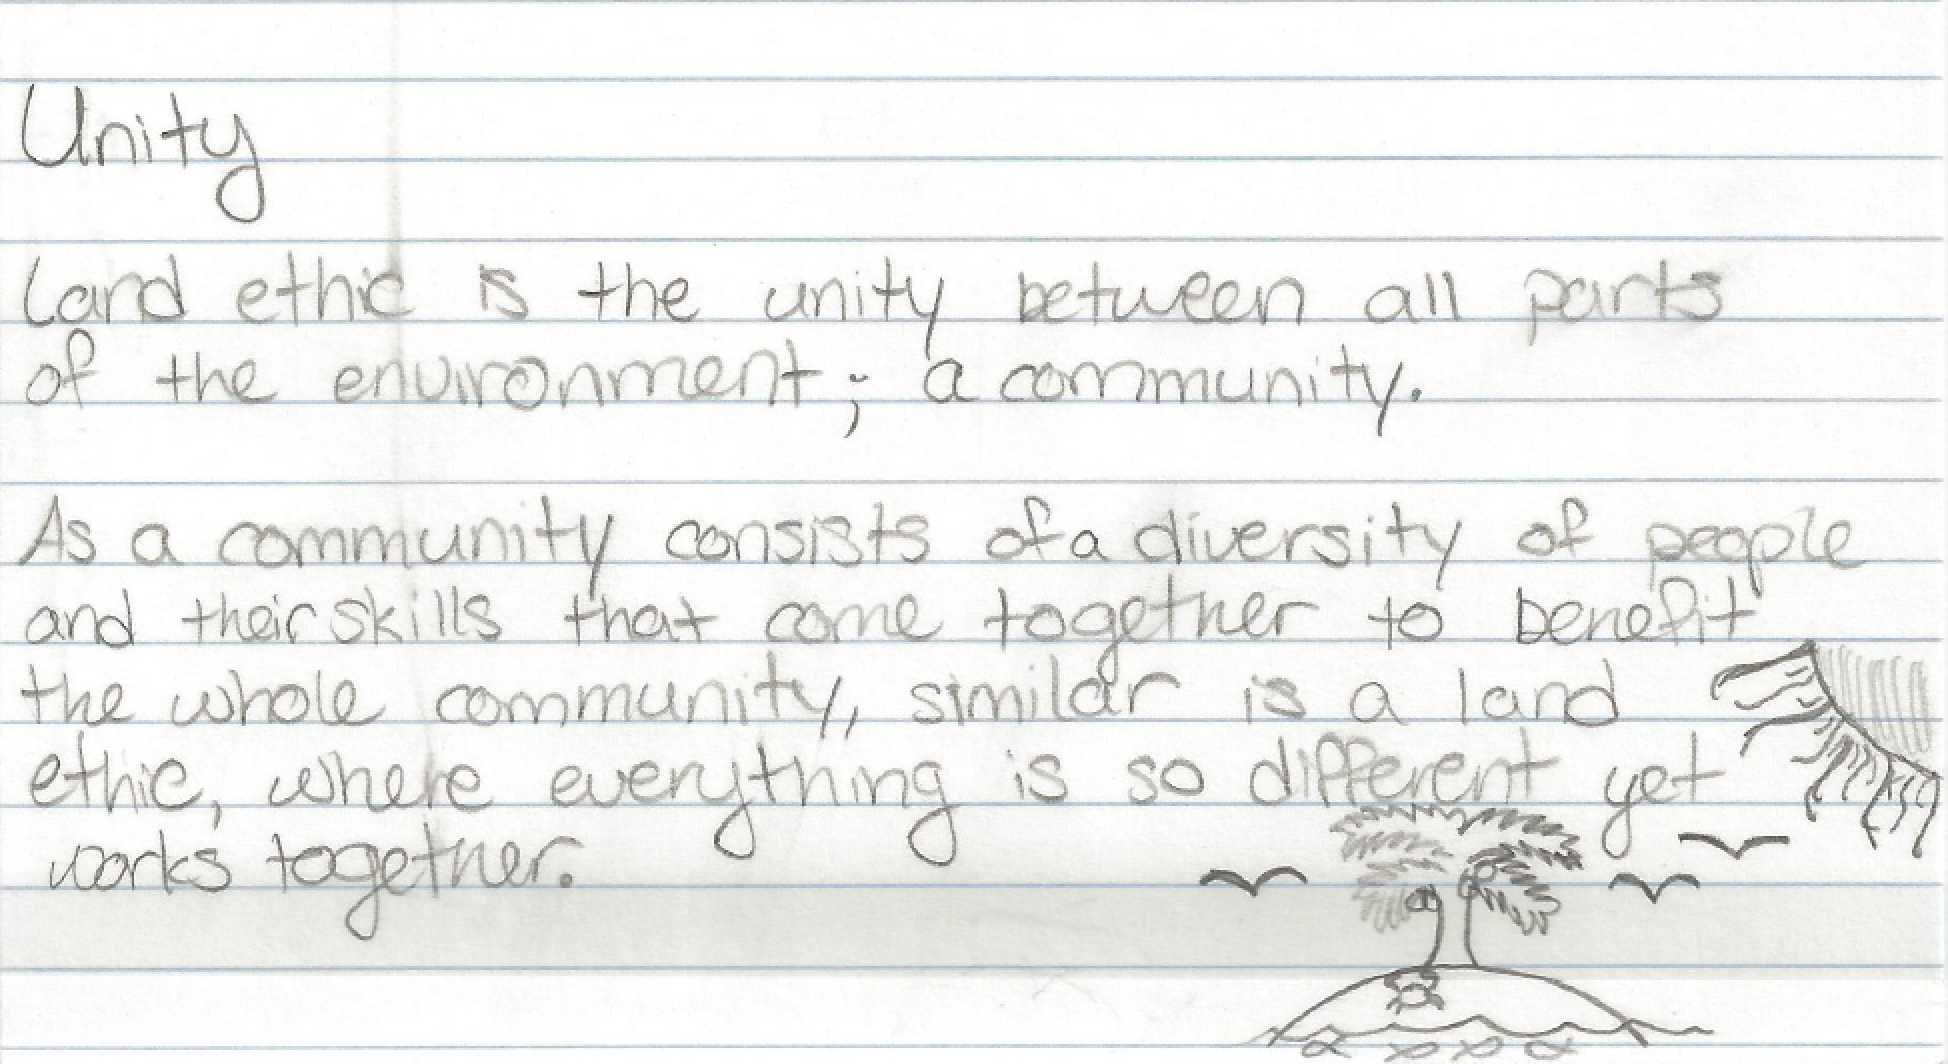 Unity
Land ethic is the unity between all parts
of the environment; a community.
As a community consists of a diversity of people
and their skills that come together to benefit
the whole community, similar is a land
ethic, where everything is so different yet
works together.